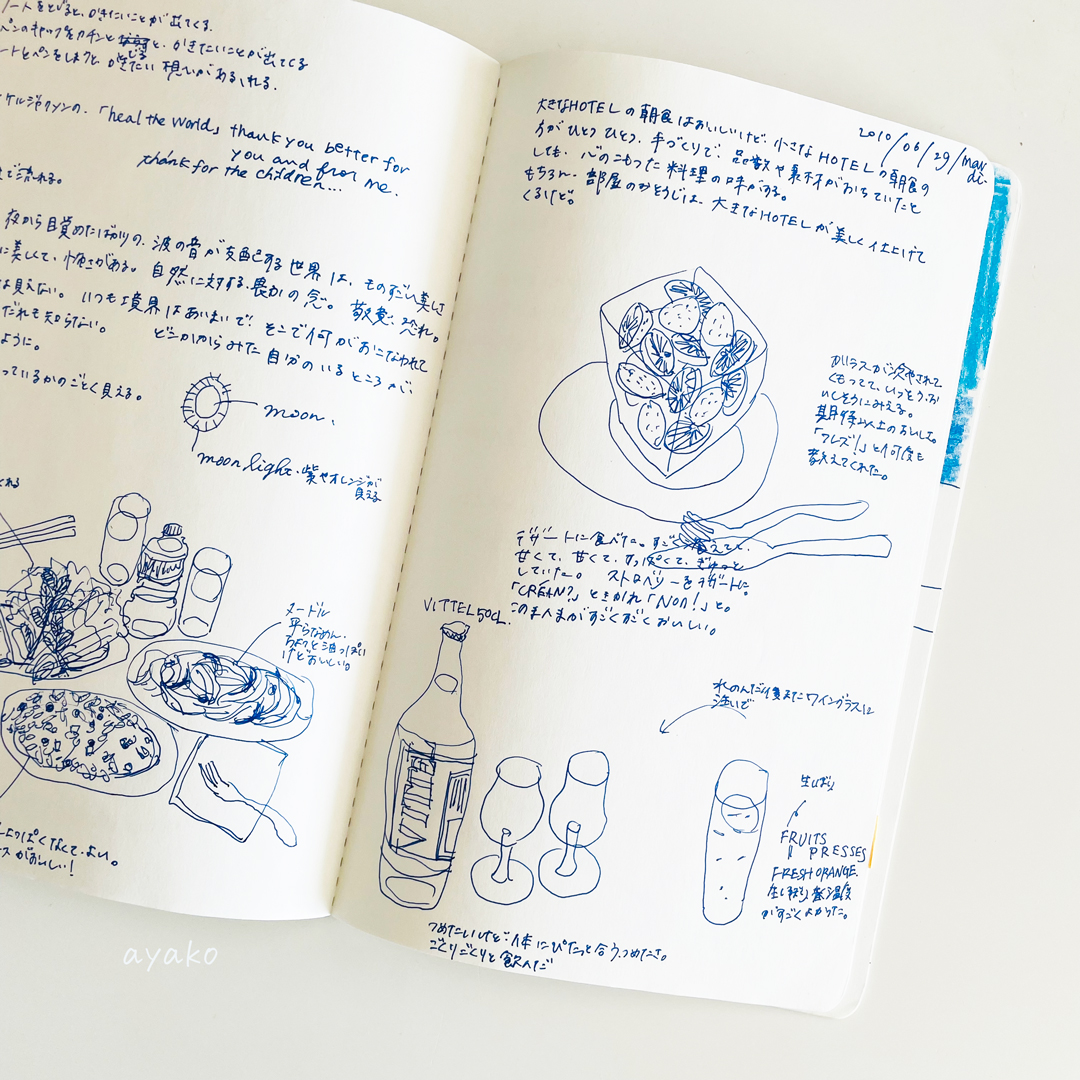 ノートをとじると、かきたいことが出てくる。
ペンのキャップをカチンと とじると、かきたいことが出てくる
ノートとペンをしまうと、かきたい想いがあふれる。
「heal the world」 thank you better for
you and from me.
thank for the children...
夜から目覚めたばかりの、波の音が支配する世界は、ものすごい美しさ
に美しくて、怖さがある。自然に対する畏かの念。敬意、恐れ。
は見えない。いつも境界はあいまいで、そこで何がおこなわれて
だれも知らない。どこかからみた自分のいるところが、
ように。
っているかのごとく見える。
moon.
moon light.紫やオレンジが
見える
ヌードル
平らなめん。
ちょっと油っぽい
けどおいしい。
っぽくなくてよい。
スがおいしい!
2010/06/29/mardi.
大きなHOTELの朝食はおいしいけど、小さなHOTELの朝食の
方がひとつひとつ、手づくりで、品数や素材がおちていたと
しても、心のこもった料理の味がする。
もちろん、部屋のおそうじは、大きなHOTELが美しく仕上げて
くるけど。
ガラスが冷やされて
くもってて、いっそう、お
いしそうにみえる。
期待以上のおいしさ。
「フレズ!」と何度も
教えてくれた。
デザートに食べた。すごく冷えてて、
甘くて、甘くて、すっぱくて、ぎゅっと
していた。 ストロベリーをデザートに。
「CRÉAN?」ときかれ「Non!」と。
このまんまがすごくすごくおいしい。
VITTEL 50CL.
水のんだ後またワイングラスに
注いで
VITTEL
生しぼり
FRUITS
PRESSES
FRESH ORANGE.
生しぼり、低温度
がすごくよかった。
つめたいけど、体にぴたっと合う、つめたさ。
ごくりごくりと飲んだ
ayako